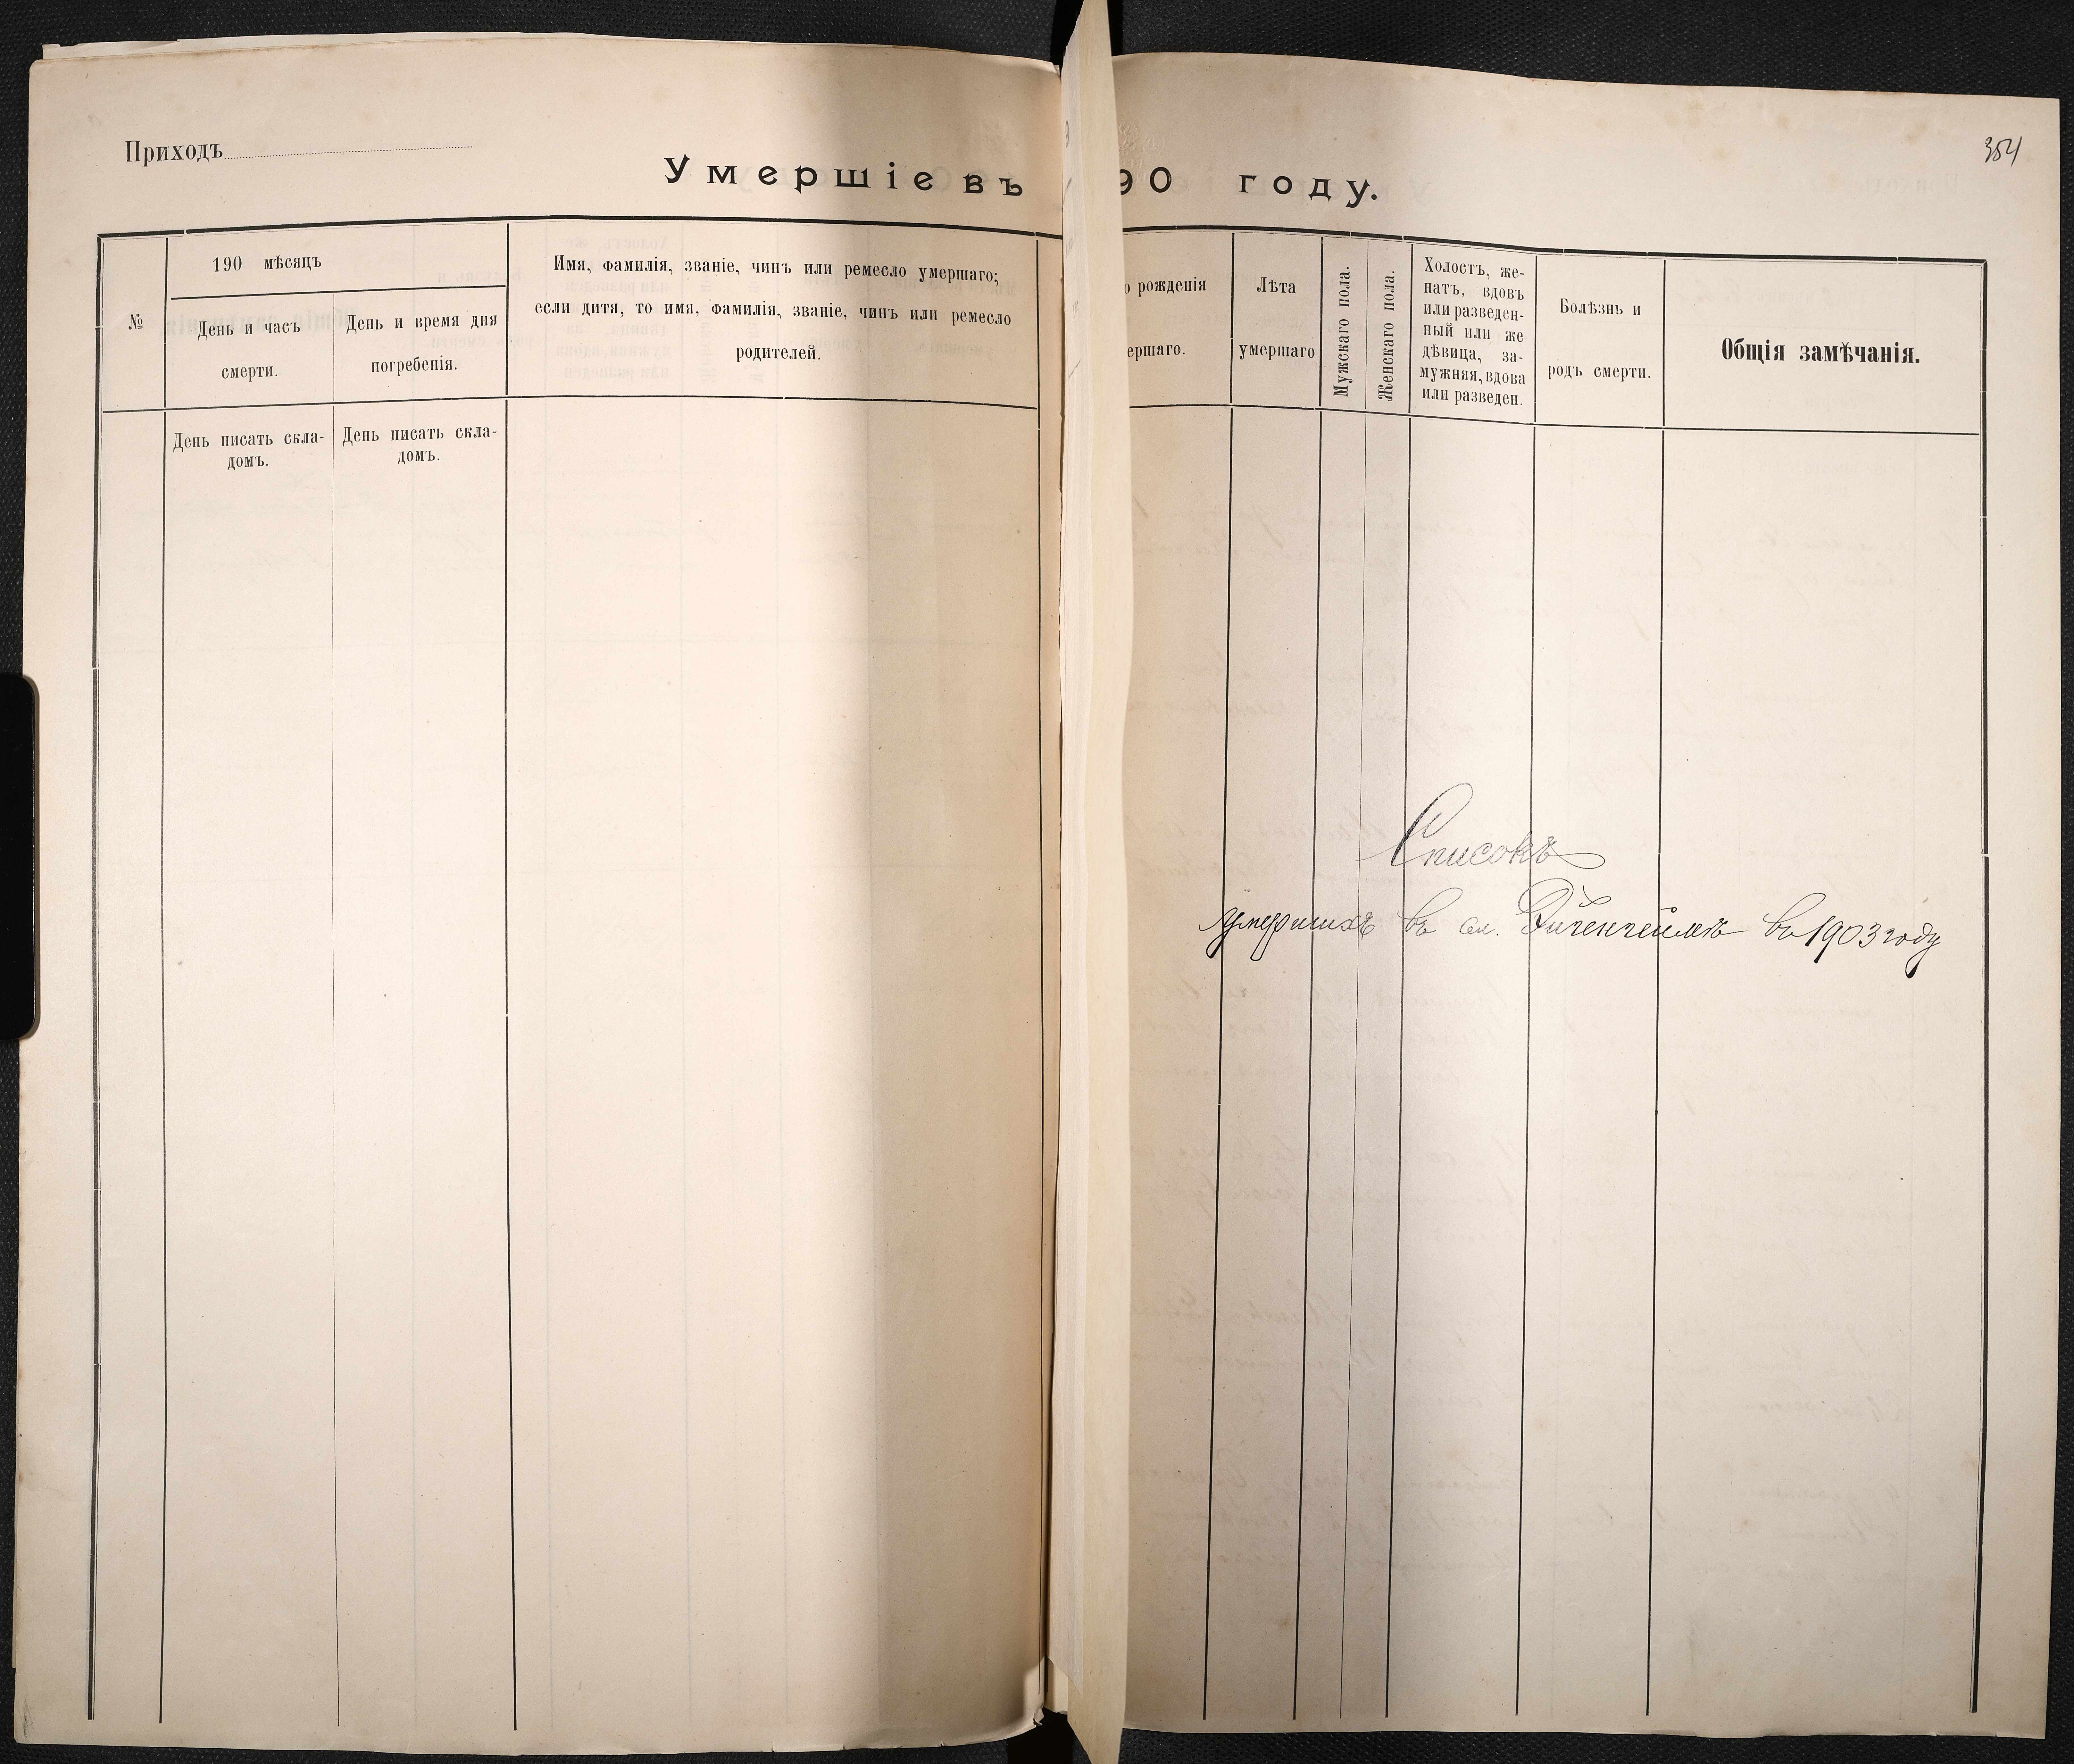 Приходъ
354
Умершіе въ 90 году.
№
190 мѣсяцъ
День и часъ
смерти.
День и время дня
погребенія.
Имя, фамилія, званіе, чинъ или ремесло умершаго;
если дитя, то имя, фамилія, званіе, чинъ или ремесло
родителей.
о рожденія
ершаго.
Лѣта
умершаго
Мужскаго пола.
Женскаго пола.
Холостъ, же-
натъ, вдовъ
или разведен-
ный или же
дѣвица, за-
мужняя, вдова
или разведен.
Болѣзнь и
родъ смерти.
Общія замѣчанія.
День писать скла-
домъ.
День писать скла-
домъ.
Списокъ
умершихъ въ с. въ 1903 году